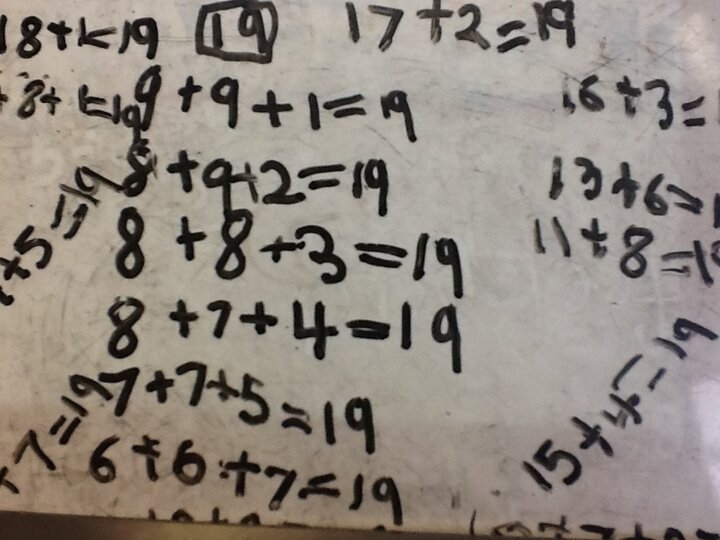 18+1=19
19
17+2=19
9+9+1=19
16+3=
8+9+2=19
13+6=
8+8+3=19
11+8=19
8+7+4=19
7+7+5=19
15+4=19
6+6+7=19
+5=19
+7=19